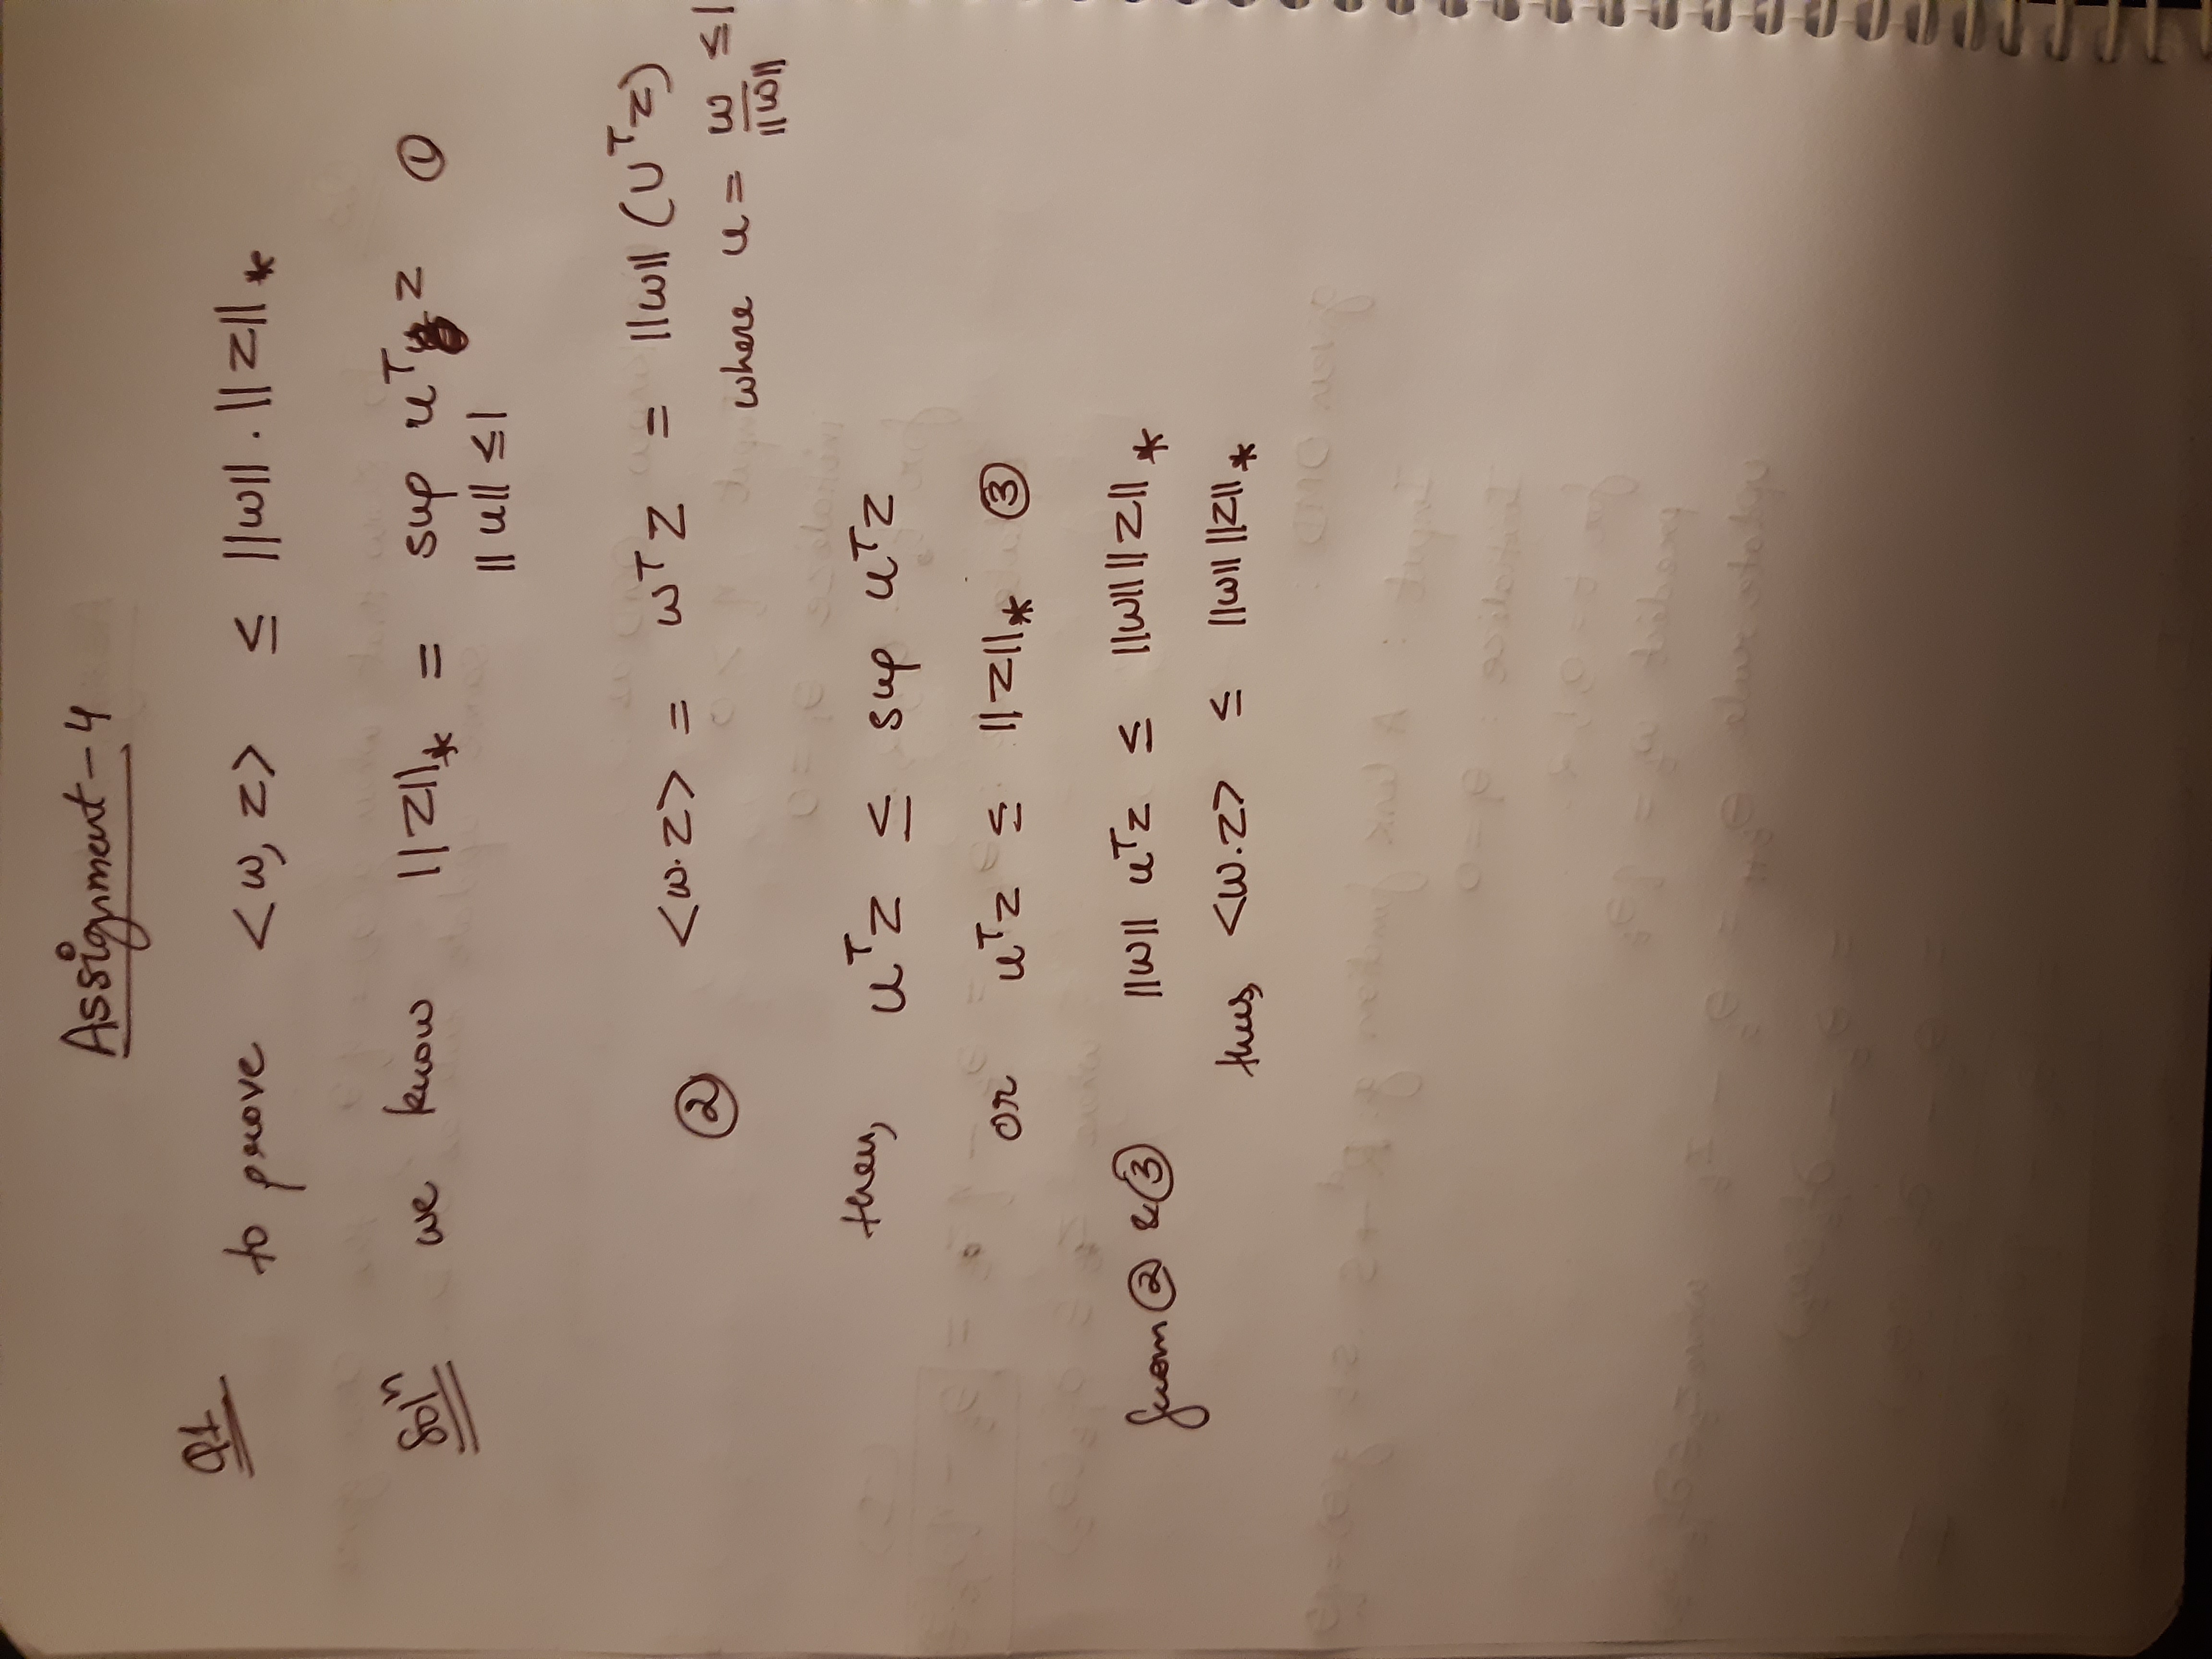 Assignment-4
Q1
to prove <w, z> ≤ ||w|| . ||z||*
Solⁿ we know ||z||* = sup uᵀ z ①
||u|| ≤1
② <w.z> = wᵀz = ||w|| (Uᵀz)
where u = w/||w|| ≤1
then, uᵀz ≤ sup uᵀz
or uᵀz ≤ ||z||* ③
from ② & ③ ||w|| uᵀz ≤ ||w|| ||z||*
thus, <w.z> ≤ ||w|| ||z||*